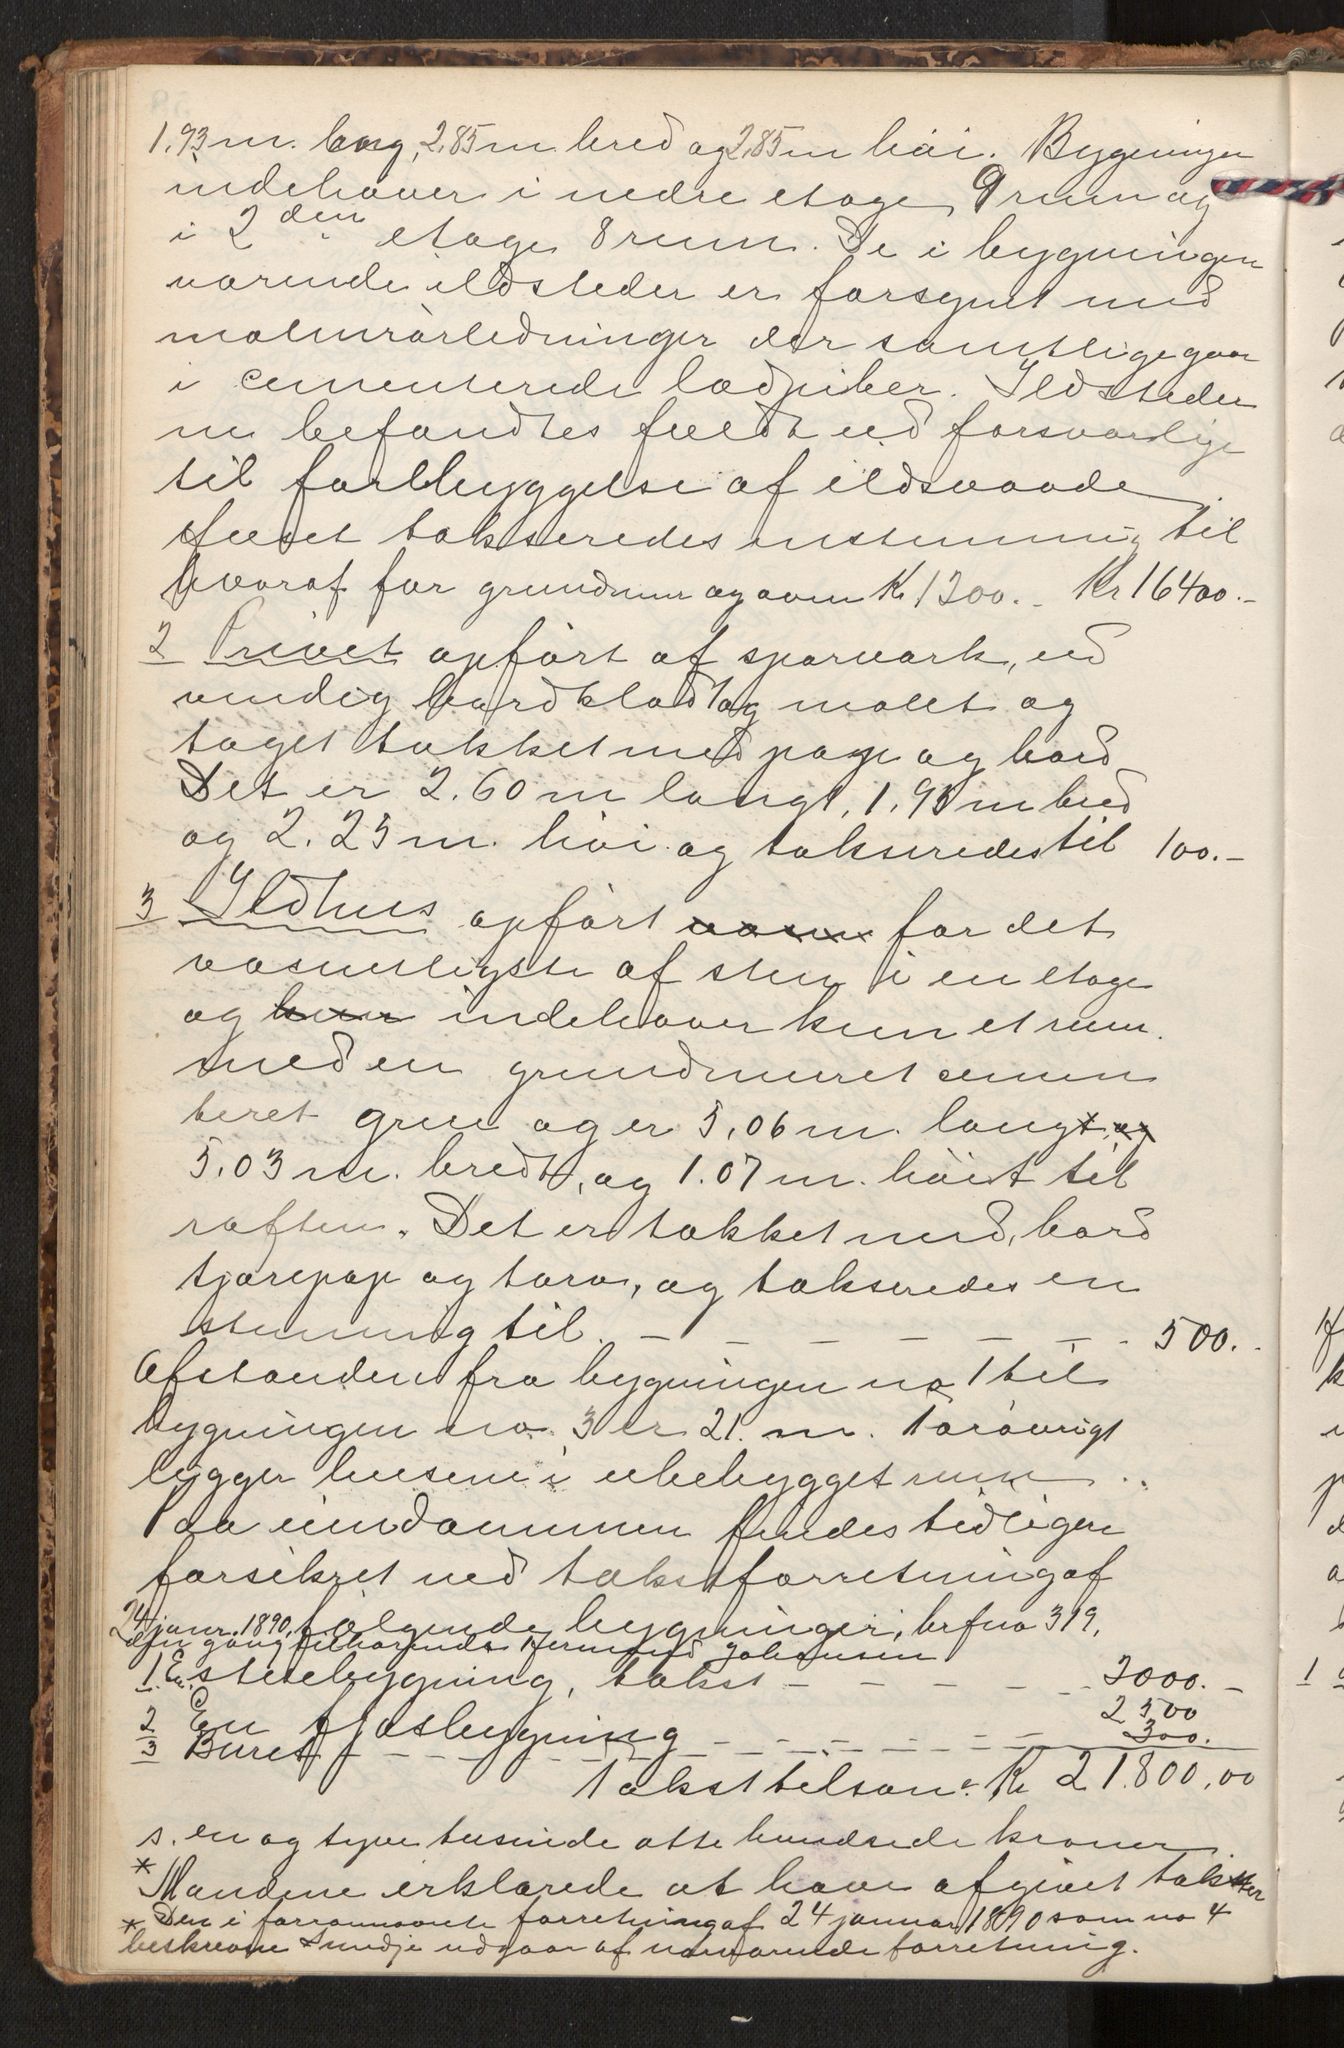 1.93 m. lang, 2,85 m bred og 2,85 m høi. Bygningen
indehaver i nedre etage 9 rum og
i 2den etage 8 rum. De i bygningen
værende ildsteder er forsynet med
malmrørledninger der samtlige gaar
i cementerede lodpiber. Ildsteder
ne befandtes fuldt ud forsvarlige
til forebyggelse af ildsvaade.
Huset takseredes enstemmig til
hvoraf for grundmur og ovne Kr 1200.- Kr 16400.-
2 Privet opført af sparværk, ud
vendig bordklædt og malet og
taget tækket med pap og bord
Det er 2.60 m langt, 1.93 m bred
og 2.23 m. høi og takseredes til 100.-
3 Ildhus opført for det
væsentligste af sten i en etage
og indehaver kun et rum
med en grundmuret cemen
teret grue og er 5,06 m. lang
5,03 m. bredt, og 1.07 m. høit til
raften. Det er tækket med bord
tjærepap og torv, og takseredes en
stemmig til. - - - - - - 500.-
Afstanden fra bygningen no 1 til
bygningen no 3 er 21. m. Forøvrigt
ligger husene i ubebygget rum.
Paa eiendommen findes tidligere
forsikret ved takstforretning af
24 janr. 1890, følgende bygninger, brfno 319,
den gang tilhørende Johnsen
1. En stuebygning, takst - - - - - 2000.-
2 En fjøsbygning - - - - - 2500
3 Buret - - - - - 300.
Takst tilsam. Kr 21.800,00
s. en og tyve tusinde otte hundrede kroner
* Mændene erklærede at have afgivet takster
* Den i forannævnte forretning af 24 januar 1890 som no 4
beskrevne smidje udgaar af nærværende forretning.